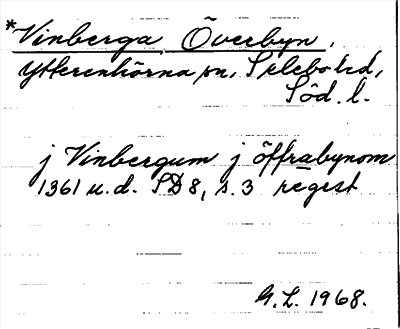 *Vinberga Överbyn,
Ytterenhörna sn, Selebo hd,
Söd. l.
j Vinbergum j öffrabynom
1361 u.d. SD 8, s. 3 regest
G.L. 1968.